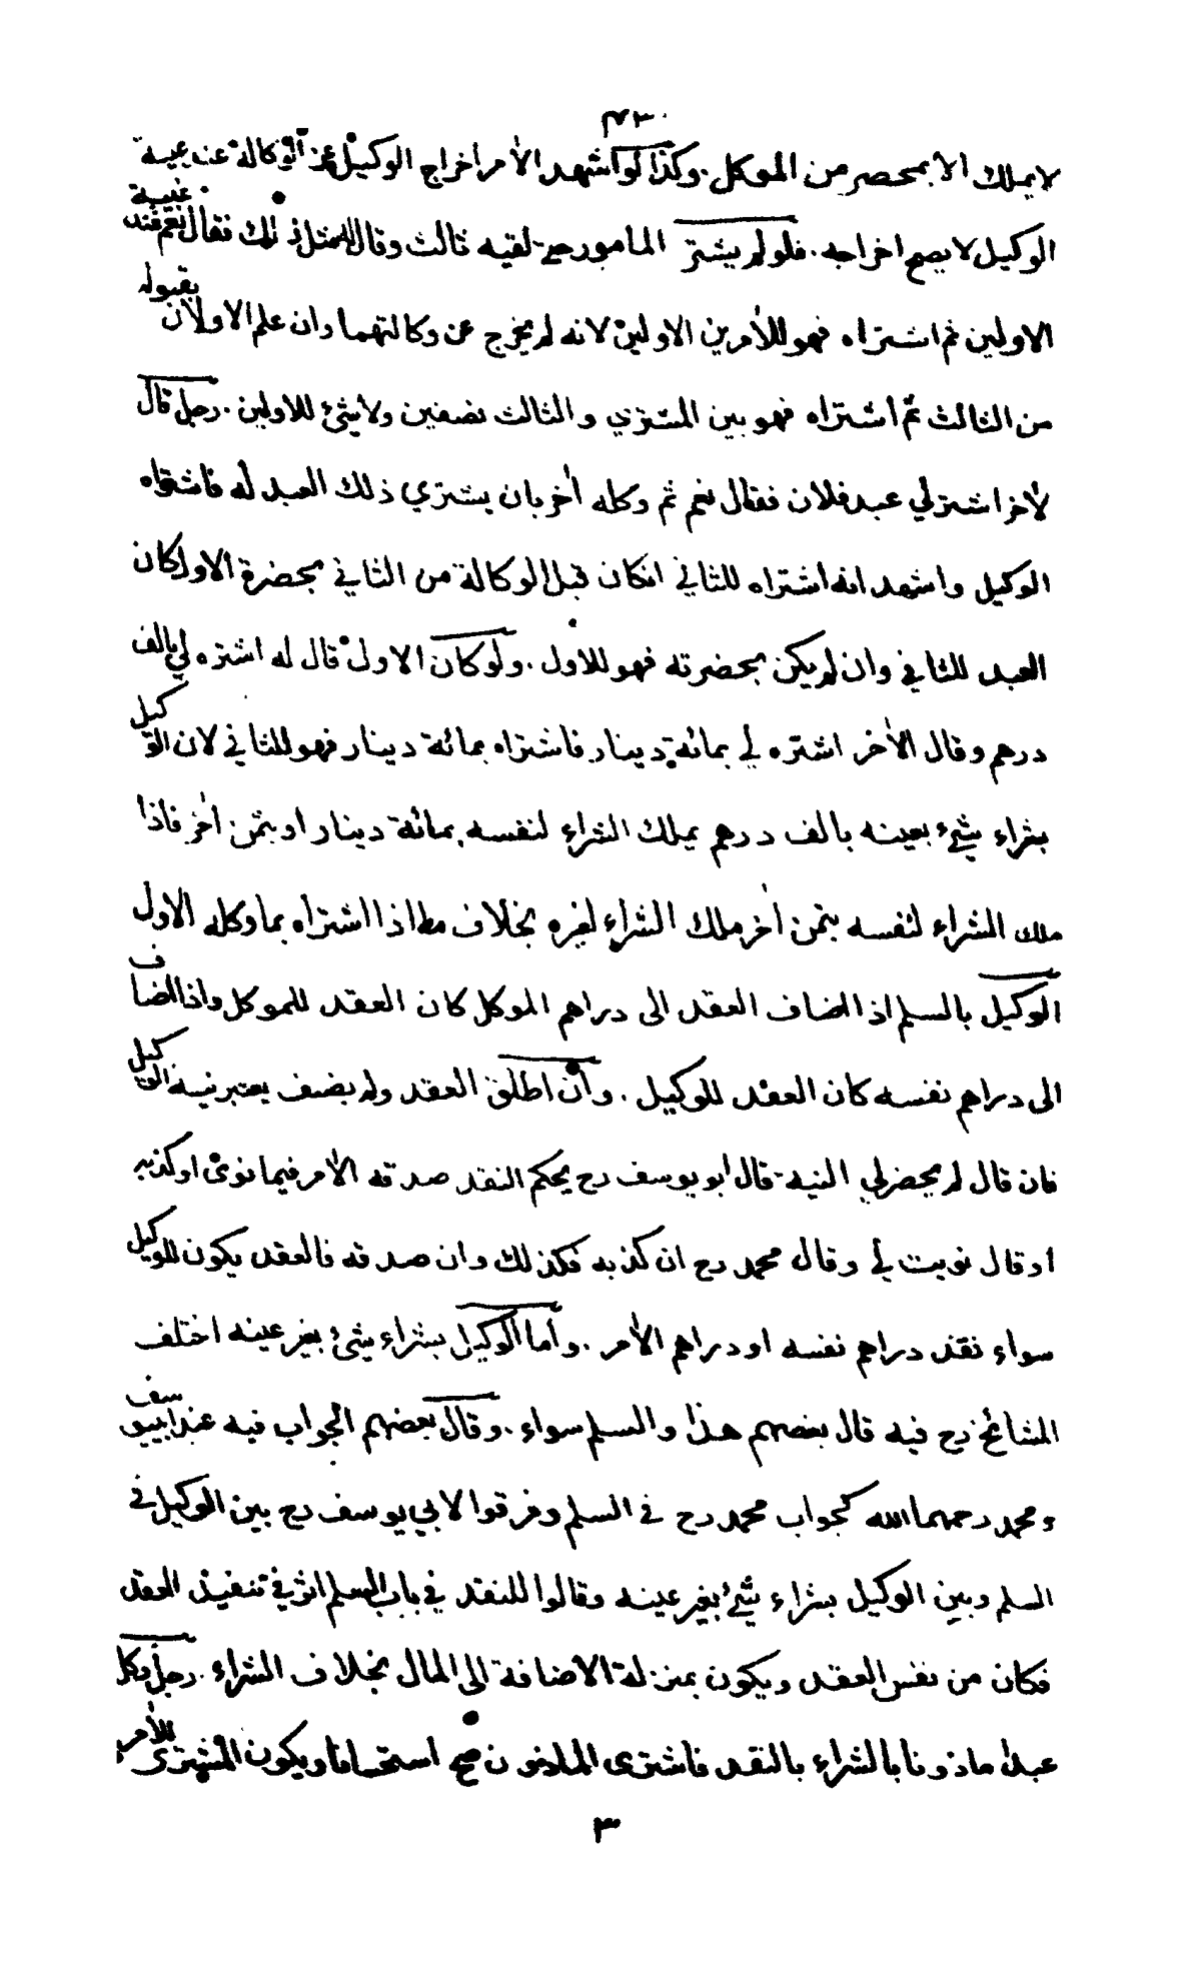 ٤٣٠
لا يملك الا بمحضر من الموكل. وكذا لو اشهد الاٰمر اخراج الوكيل عن الوكالة عند غيبة
الوكيل لا يصح اخراجه. فلو لم يشتر المامور حتى لقيه ثالث وقال له مثل ذلك فقال نعم فقد غيبة
الاولين ثم اشتراه فهو للاٰمرين الاولين لانه لم يخرج عن وكالتهما وان علم الاولان بقبوله
من الثالث ثم اشتراه فهو بين المشتري والثالث نصفين ولا شئ للاولين. رجل قال
لاٰخر اشتر لي عبد فلان فقال نعم ثم وكله اٰخر بان يشتري ذلك العبد له فاشتراه
الوكيل واشهد انه اشتراه للثاني انكان قبل الوكالة من الثاني بحضرة الاول كان
العبد للثاني وان لم يكن بحضرته فهو للاول. ولو كان الاول قال له اشتره لي بالف
درهم وقال الاٰخر اشتره لي بمائة دينار فاشتراه بمائة دينار فهو للثاني لان الوكيل
بشراء شئ بعينه بالف درهم يملك الشراء لنفسه بمائة دينار او بثمن اٰخر فاذا
ملك الشراء لنفسه بثمن اٰخر ملك الشراء لغيره بخلاف ما اذا اشتراه بما وكله الاول
الوكيل بالسلم اذا اضاف العقد الى دراهم الموكل كان العقد للموكل واذا اضاف
الى دراهم نفسه كان العقد للوكيل. وان اطلق العقد ولم يضف يعتبر نية الوكيل
فان قال لم يحضرلي النية قال ابو يوسف رح يحكم النقد صدقه الاٰمر فيما نوى او كذبه
او قال نويت لي وقال محمد رح ان كذبه فكذلك وان صدقه فالعقد يكون للوكيل
سواء نقد دراهم نفسه او دراهم الاٰمر. واما الوكيل بشراء شئ بغير عينه اختلف
المشائخ رح فيه قال بعضهم هذا والسلم سواء. وقال بعضهم الجواب فيه عند ابييوسف
و محمد رحمهما الله كجواب محمد رح في السلم وفرقوا لابي يوسف رح بين الوكيل في
السلم وبين الوكيل بشراء شئ بغير عينه وقالوا للنقد في باب السلم اثر في تنفيذ العقد
فكان من نفس العقد ويكون بمنزلة الاضافة الى المال بخلاف الشراء. رجل وكل
عبدا ماذونا بالشراء بالنقد فاشترى الماذون صح استحسانا ويكون المشترى للاٰمر
٣